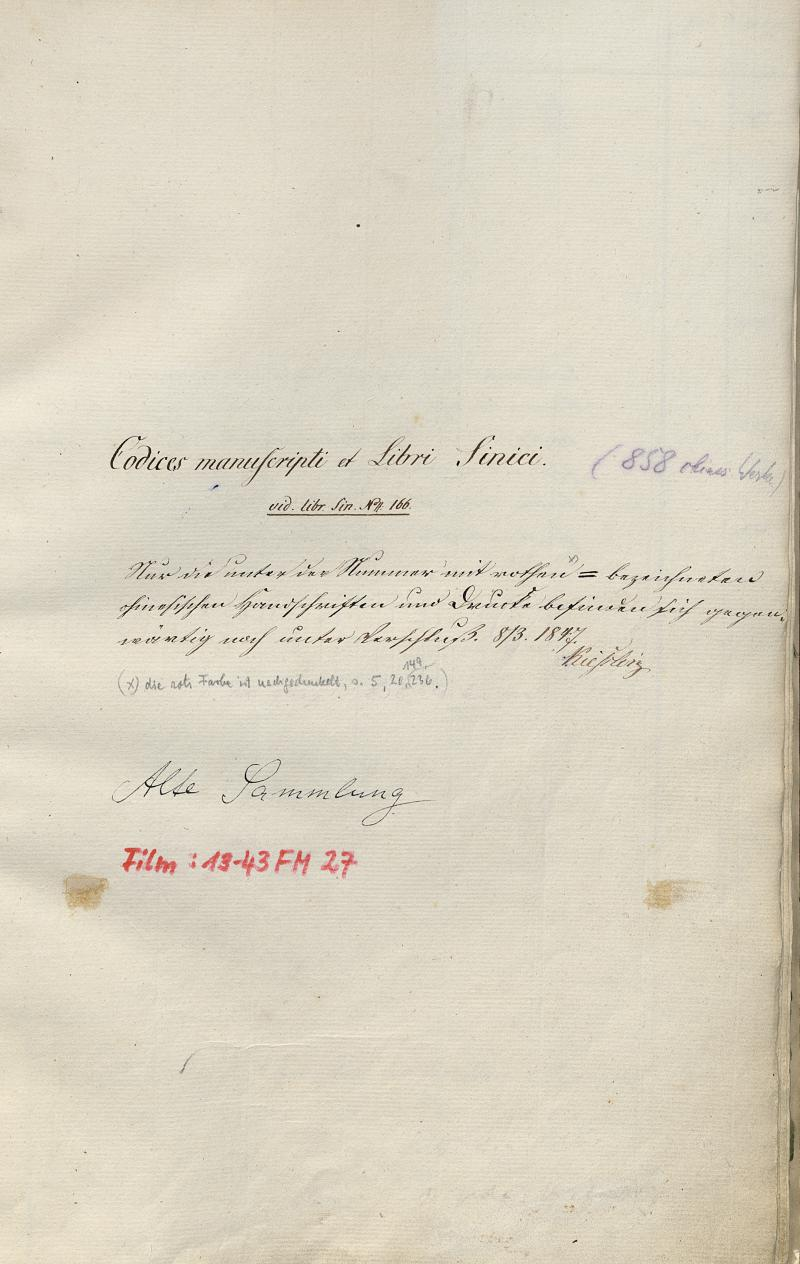 Codices manuscripti et Libri Sinici.
(858 chines. Werke)
vid. libr. Sin. No 4. 166.
Nur die unter der Nummer mit rothen x) = bezeichneten
chinesischen Handschriften und Drucke befinden sich gegen-
wärtig noch unter Verschluß. 8/3. 1847.
Kießling
(x) die rote Farbe ist nachgedunkelt, s. 5, 20, 149, 236.)
Alte Sammlung
Film : 13-43 FM 27